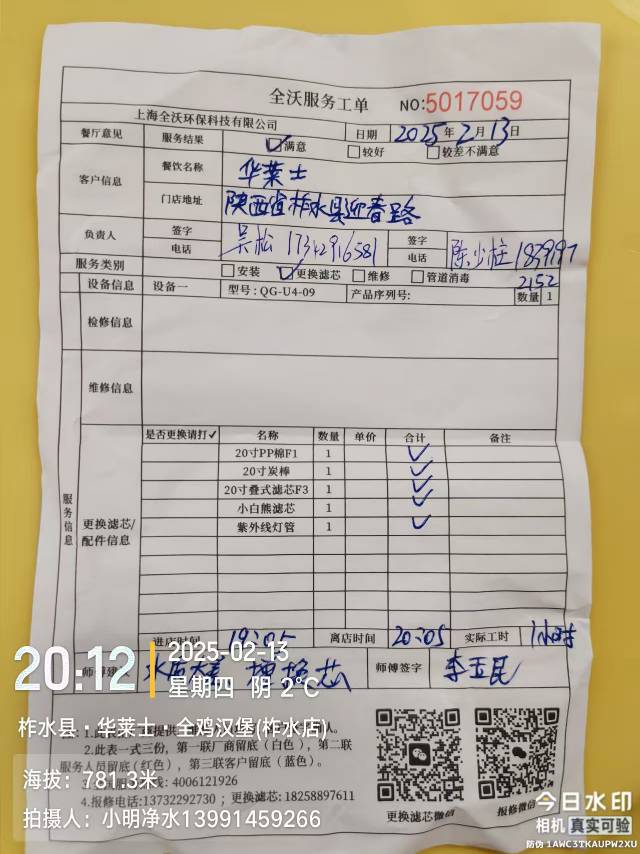 全沃服务工单 NO:5017059
上海全沃环保科技有限公司 日期 2025年2月13日
餐厅意见 服务结果 ✓满意 □较好 □较差不满意
客户信息 餐饮名称 华莱士
门店地址 陕西省柞水县迎春路
负责人 签字 电话 吴松 17342916581 签字 电话 陈少柱 1839197
2152
服务类别 □安装 ✓更换滤芯 □维修 □管道消毒
设备信息 设备一 型号: QG-U4-09 产品序列号: 数量 1
检修信息
维修信息
服务信息
更换滤芯/配件信息
是否更换请打✓ 名称 数量 单价 合计 备注
20寸PP棉F1 1 ✓
20寸炭棒 1 ✓
20寸叠式滤芯F3 1 ✓
小白熊滤芯 1 ✓
紫外线灯管 1 ✓
进店时间 19:05 离店时间 20:05 实际工时 1小时
师傅建议 换芯 师傅签字 李玉民
20:12 2025-02-13
星期四 阴 2℃
柞水县·华莱士·全鸡汉堡(柞水店)
海拔: 781.3米
拍摄人: 小明净水13991459266
2.此表一式三份，第一联厂商留底（白色），第二联
服务人员留底(红色)，第三联客户留底（蓝色）。
线: 4006121926
4.报修电话:13732292730 ; 更换滤芯: 18258897611
更换滤芯微信 报修微信
今日水印
相机 真实可验
防伪 1AWC3TKAUPW2XU